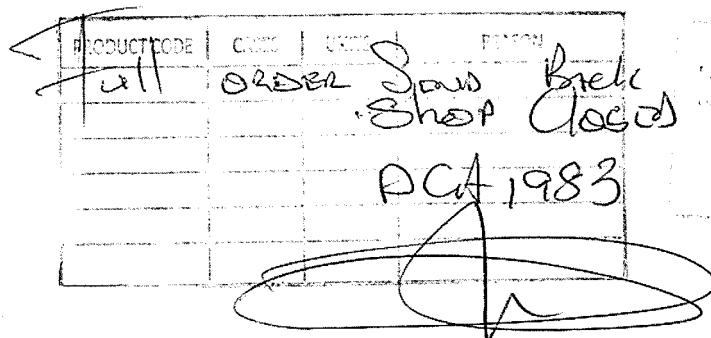 PRODUCT CODE CASES UNITS REASON
Full ORDER Send Back
Shop Closed
PCA 1983